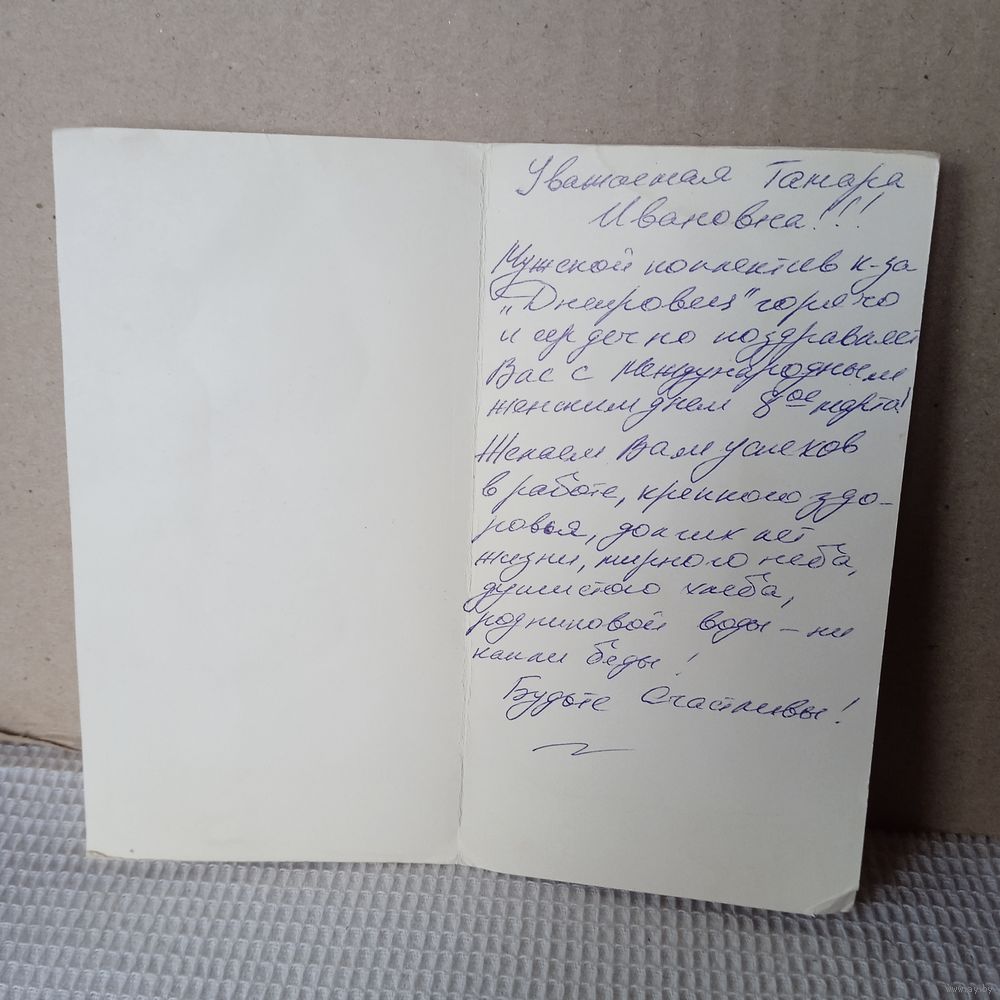 Уважаемая Тамара
Ивановна!!!
Мужской коллектив к-за
„Днепровец" горячо
и сердечно поздравляет
Вас с Международным
женским днем 8ое марта!
Желаем Вам успехов
в работе, крепкого здо-
ровья, долгих лет
жизни, мирного неба,
душистого хлеба,
родниковой воды – ни
капли беды!
Будьте Счастливы!
www.ay.by